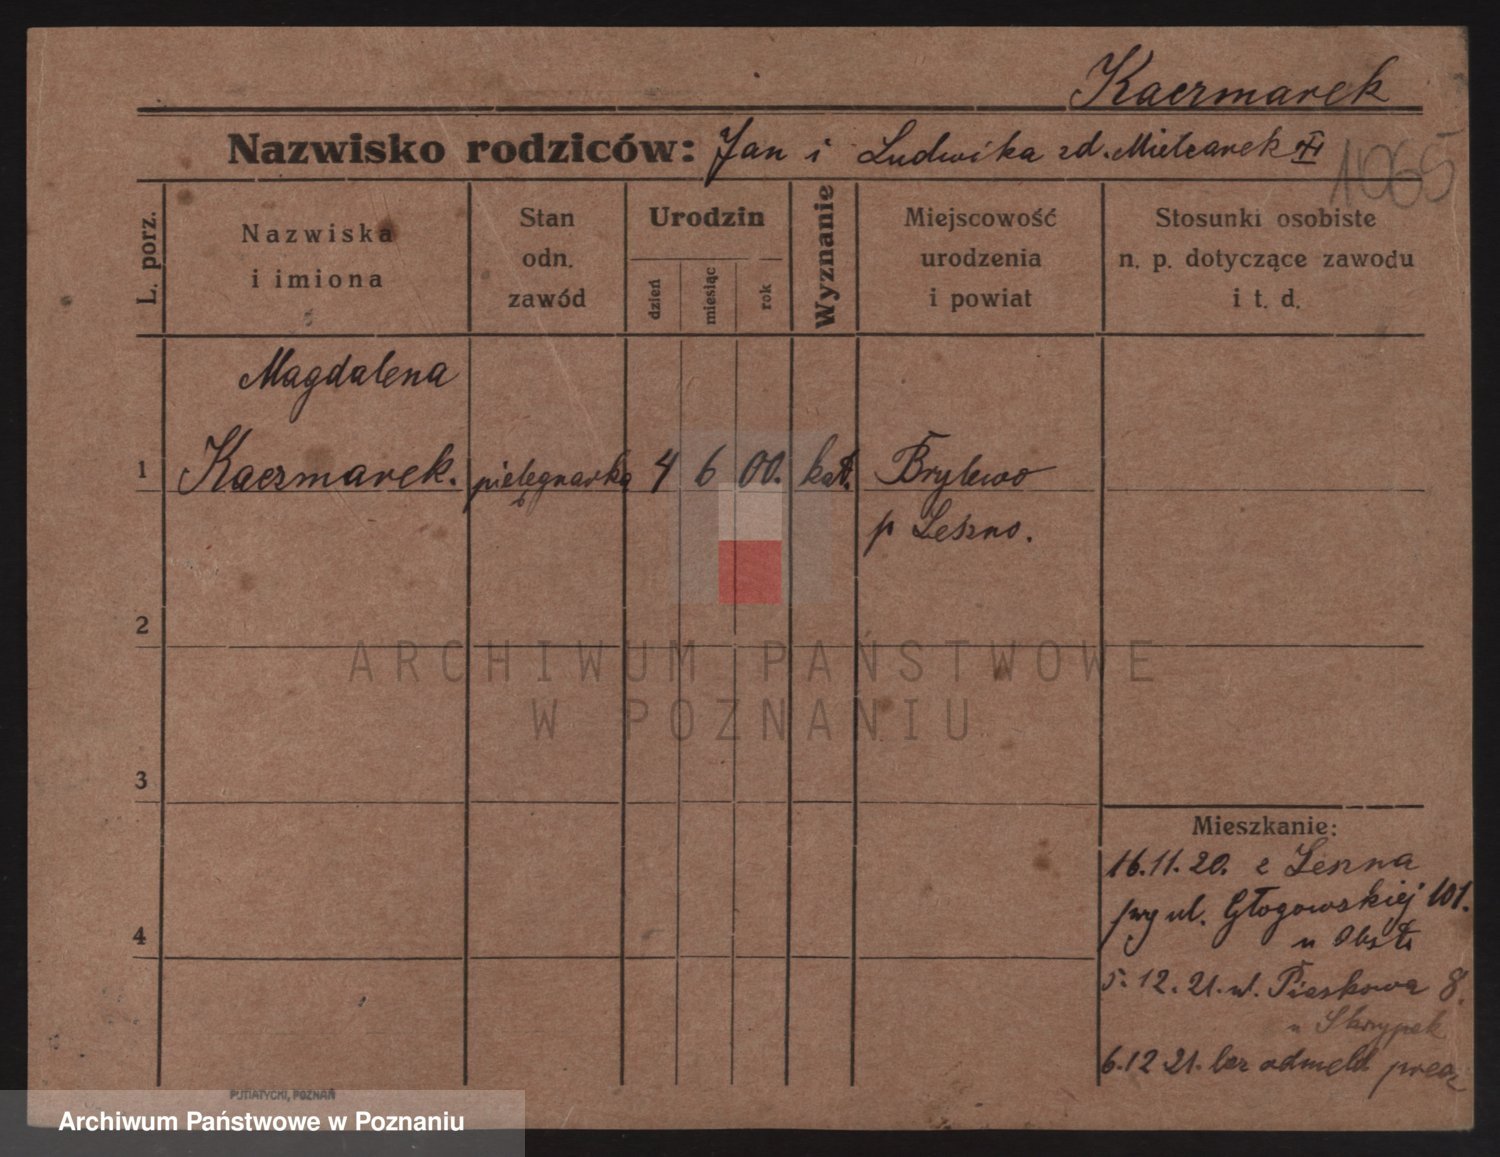 Kaczmarek
Nazwisko rodziców: Jan i Ludwika zd. Mielcarek
1065
L. porz.
Nazwiska
i imiona
Stan
odn.
zawód
Urodzin
dzień
miesiąc
rok
Wyznanie
Miejscowość
urodzenia
i powiat
Stosunki osobiste
n. p. dotyczące zawodu
i t. d.
Magdalena
1 Kaczmarek. pielęgnarka 4 6 00. kat. Brylewo
p Leszno.
2
ARCHIWUM PAŃSTWOWE
W POZNANIU
3
4
Mieszkanie:
16.11.20. z Leszna
przy ul. Głogowskiej 101.
u
5.12.21. ul. Piaskowa 8.
u Skrzypek
6.12 21. bez odmeld precz
PUTIATYCKI, POZNAŃ
Archiwum Państwowe w Poznaniu